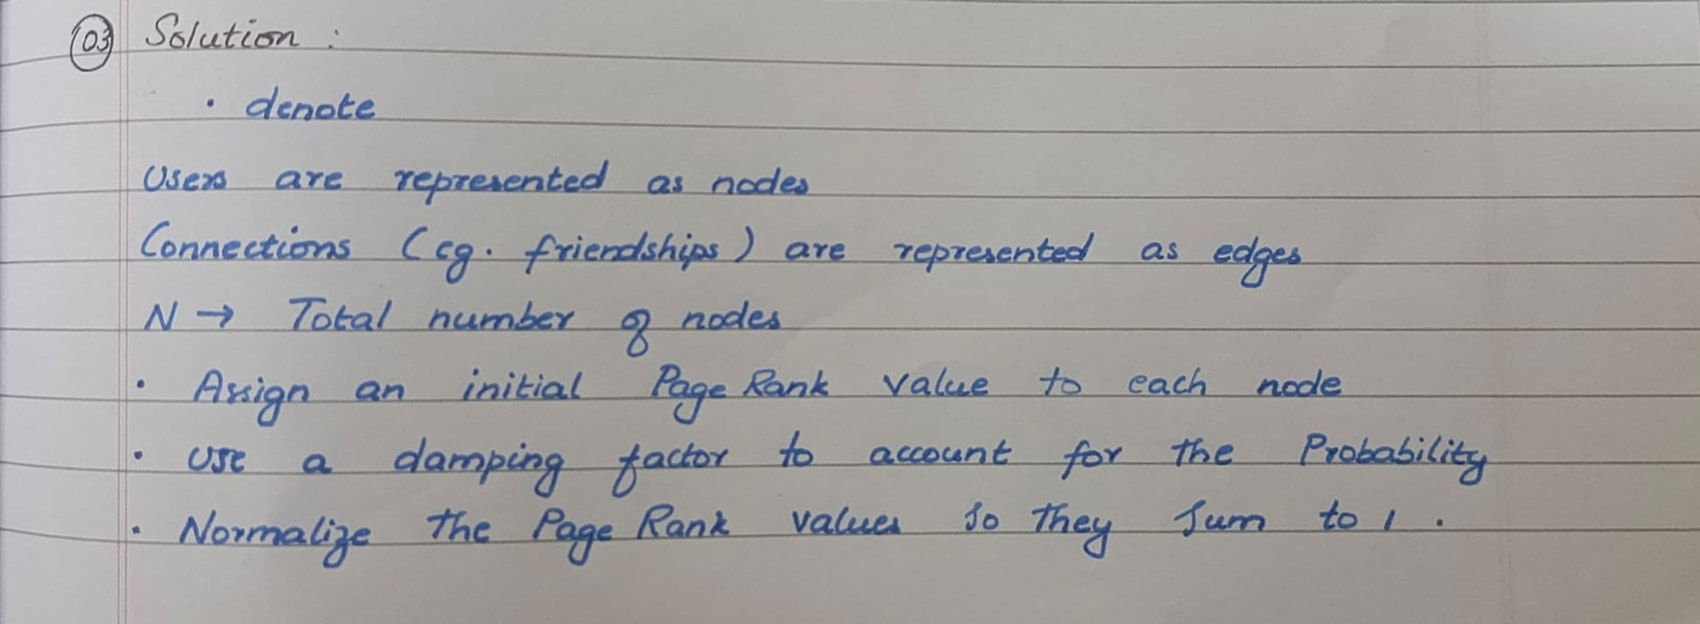 03 Solution :
• denote
Users are represented as nodes
Connections (eg. friendships) are represented as edges
N → Total number of nodes
• Assign an initial Page Rank value to each node
• Use a damping factor to account for the Probability
• Normalize the Page Rank values so they sum to 1.